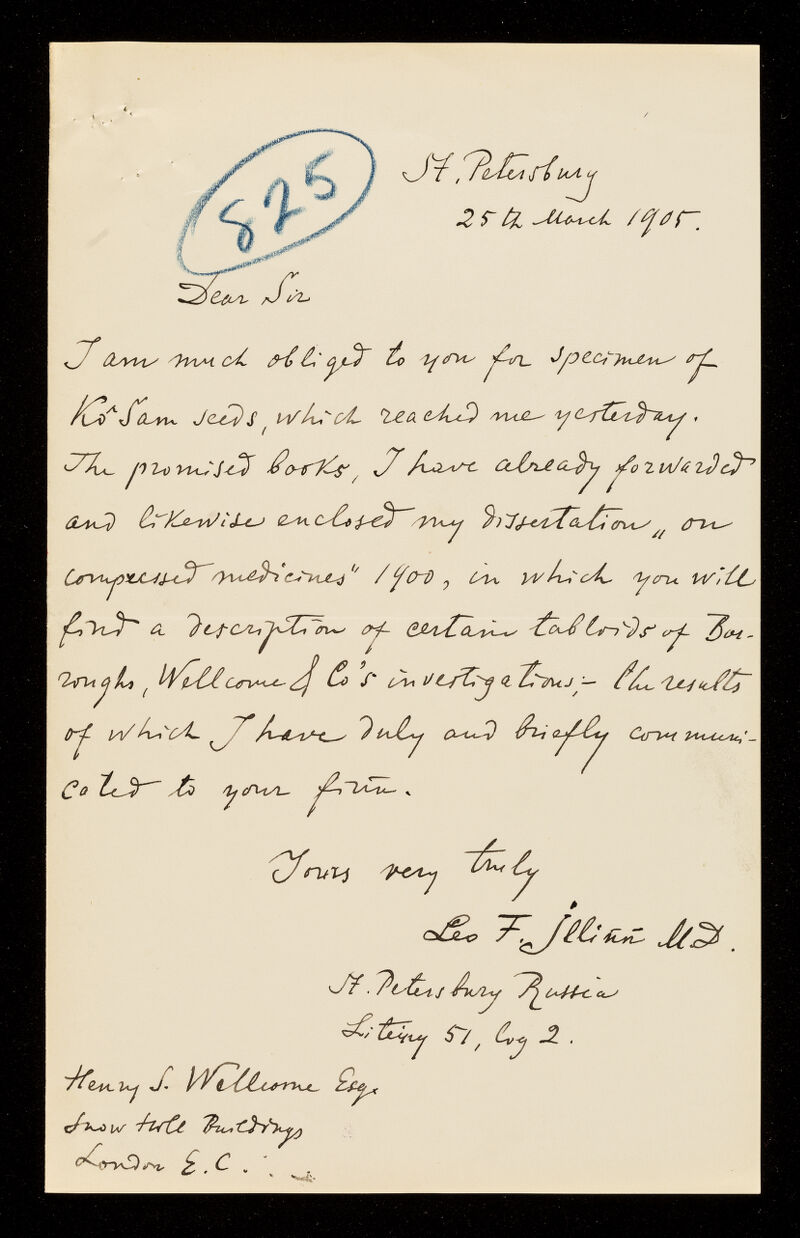 825
St. Petersburg
25th March 1905.
Dear Sir
I am much obliged to you for specimen of
Kô Sam seeds, which reached me yesterday.
The promised books, I have already forwarded
and likewise enclosed my dissertation „on
compressed medicines" 1900, in which you will
find a description of certain tabloids of Bur-
roughs, Wellcome & Co's investigations,- the results
of which I have duly and briefly communi-
cated to your firm.
Yours very truly
Leo F. Jllinn M.D.
St. Petersburg Russia
Liteiny 51, log 2.
Henry S. Wellcome Esq.
Snow Hill Buildings
London E.C.